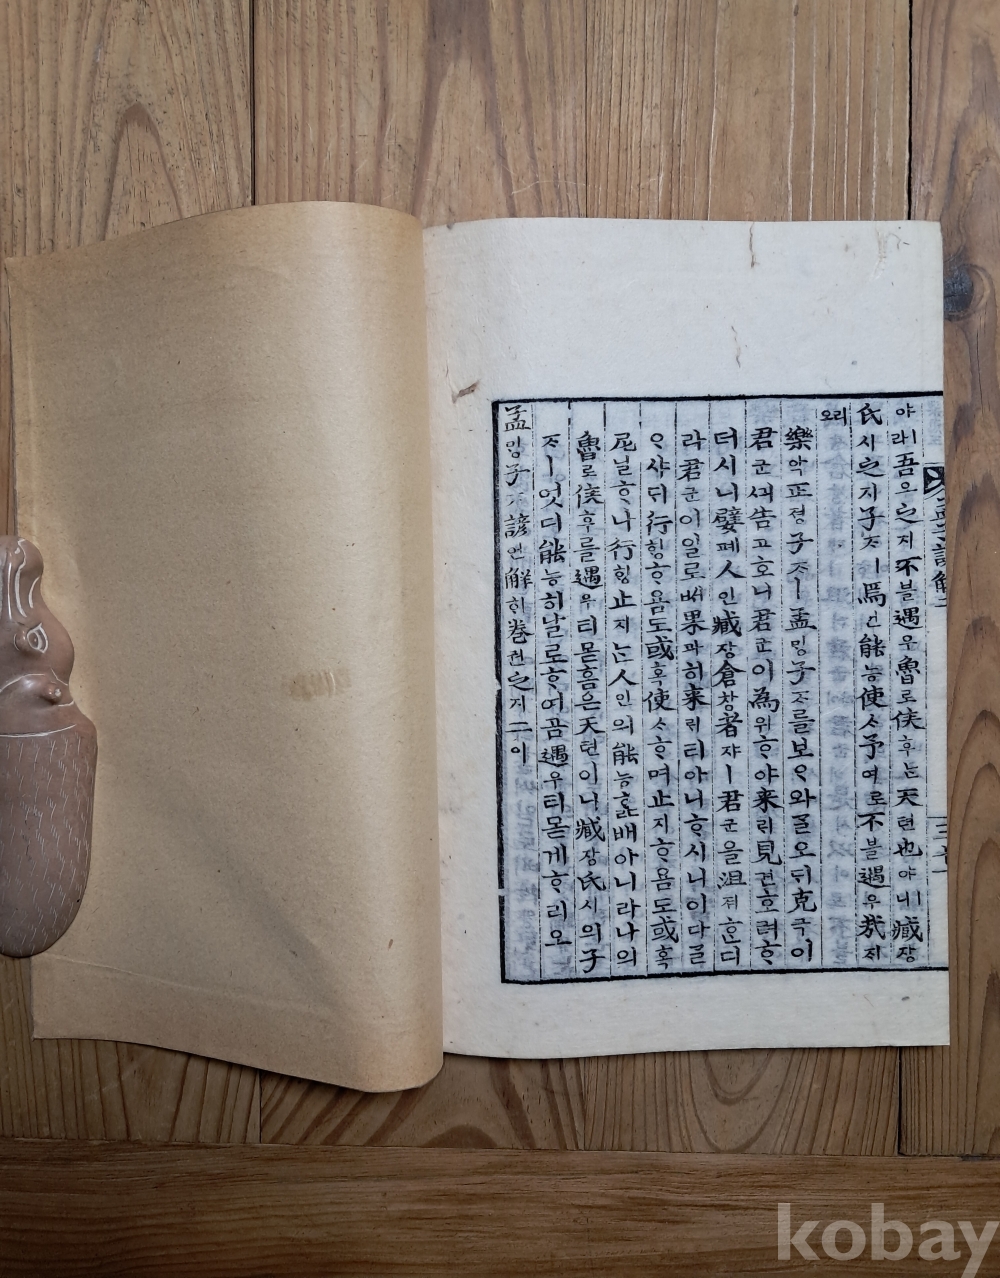 야ㅣ라吾오之지不블遇우魯로侯후ᄂᆞᆫ天텬也야ㅣ니臧장
氏시之지子ᄌᆞㅣ焉언能능使ᄉᆞ予여로不블遇우哉ᄌᆡ
리오
樂악正졍子ᄌᆞㅣ孟ᄆᆡᆼ子ᄌᆞ를보ᄋᆞ와ᄀᆞᆯ오ᄃᆡ克극이
君군ᄭᅴ告고호니君군이為위ᄒᆞ야来ᄅᆡ見견호려ᄒᆞ
더시니嬖폐人인臧장倉창者쟈ㅣ君군을沮져혼디
라君군이일로ᄡᅥ果과히来ᄅᆡ티아니ᄒᆞ시니이다ᄀᆞᆯ
ᄋᆞ샤ᄃᆡ行ᄒᆡᆼᄒᆞ욤도或혹使ᄉᆞᄒᆞ며止지ᄒᆞ욤도或혹
尼닐ᄒᆞ나行ᄒᆡᆼ止지ᄂᆞᆫ人인의能능ᄒᆞᆯ배아니라나의
魯로侯후를遇우티몯흠은天텬이니臧장氏시의子
ᄌᆞㅣ엇디能능히날로ᄒᆞ여곰遇우티몯게ᄒᆞ리오
孟ᄆᆡᆼ子ᄌᆞ諺언解ᄒᆡ卷권之지二이
kobay